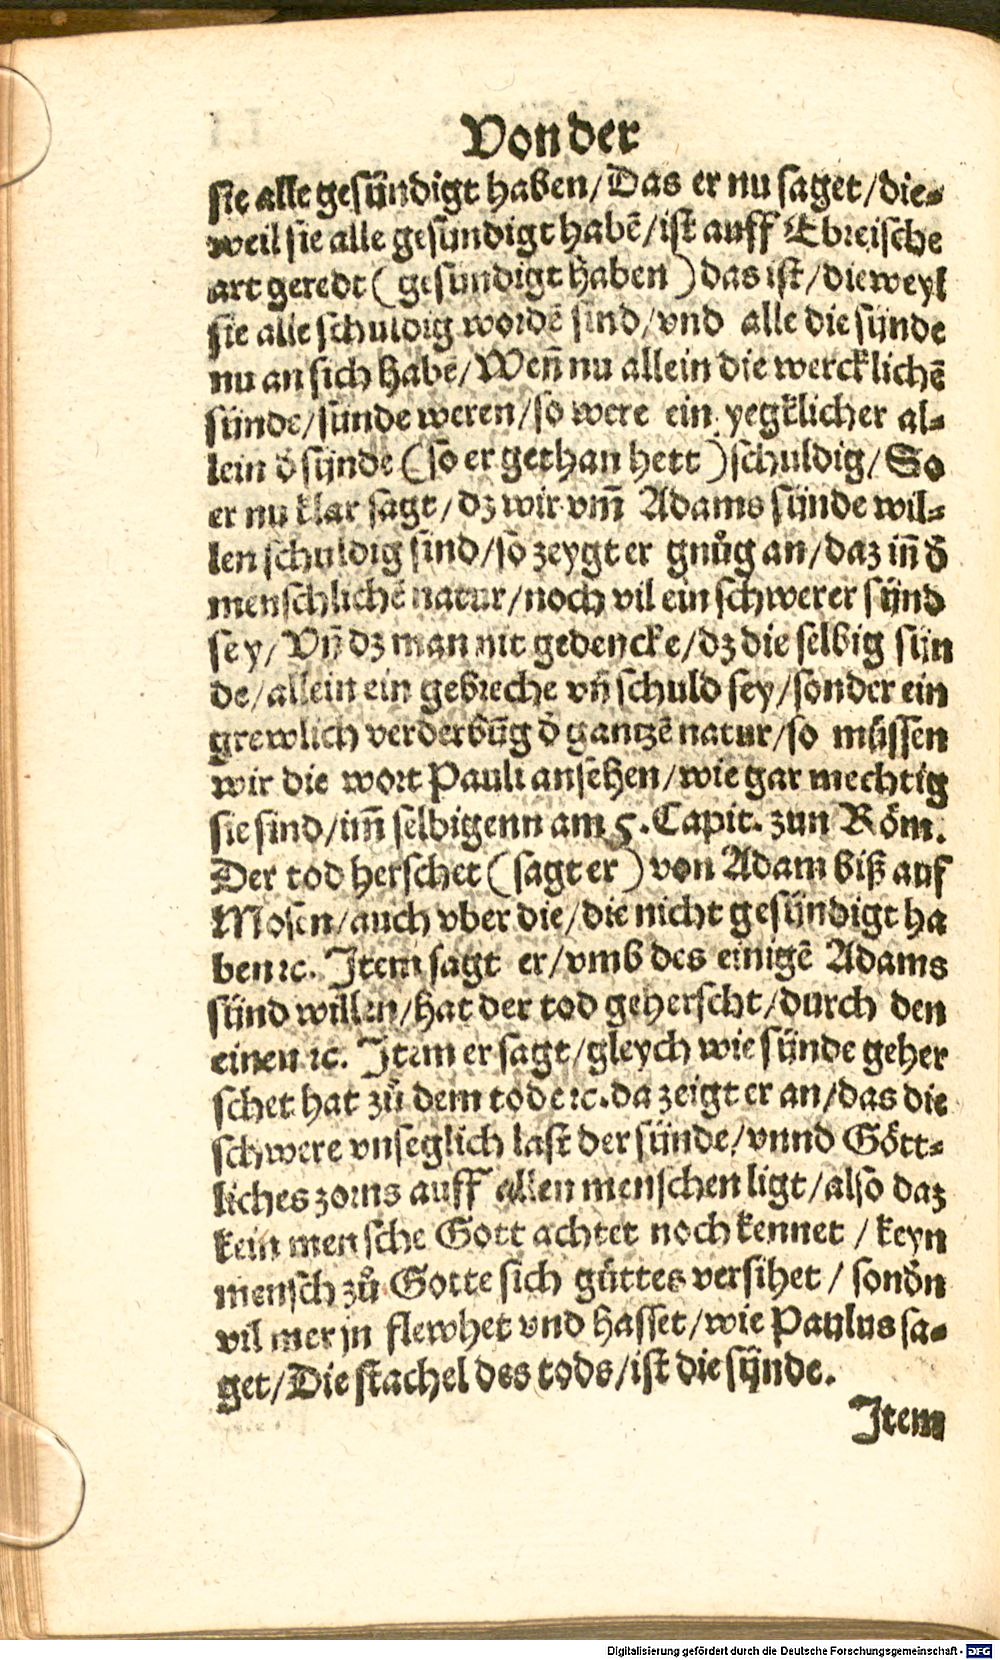 Von der
sie alle gesündigt haben/Das er nu saget/die-
weil sie alle gesündigt habē/ist auff Ebreische
art geredt ( gesündigt haben ) das ist/dieweyl
sie alle schuldig wordē sind/vnd alle die sünde
nu an sich habē/Weñ nu allein die wercklichē
sünde/sünde weren/so were ein yegklicher al-
lein d̄ sünde (so er gethan hett )schuldig/So
er nu klar sagt/dz wir vm̃ Adams sünde wil-
len schuldig sind/so zeygt er gnůg an/daz iñ d̄
menschlichē natur/noch vil ein schwerer sünd
sey/Vñ dz man nit gedencke/dz die selbig sün
de/allein ein gebreche vñ schuld sey/sonder ein
grewlich verderbūg d̄ gantzē natur/so müssen
wir die wort Pauli ansehen/wie gar mechtig
sie sind/im̃ selbigenn am 5.Capit. zun Röm.
Der tod herschet ( sagt er ) von Adam biß auf
Mosen/auch vber die/die nicht gesündigt ha
ben ꝛc. Item sagt er/vmb des einigē Adams
sünd willen/hat der tod geherscht/durch den
einen ꝛc. Item er sagt/gleych wie sünde geher
schet hat zů dem tode ꝛc.da zeigt er an/das die
schwere vnseglich last der sünde/vnnd Gött-
liches zorns auff allen menschen ligt/also daz
kein mensche Gott achtet noch kennet / keyn
mensch zů Gotte sich güttes versihet / sond̄n
vil mer jn flewhet vnd hasset/wie Paulus sa-
get/Die stachel des tods/ist die sünde.
Item
Digitalisierung gefördert durch die Deutsche Forschungsgemeinschaft - DFG